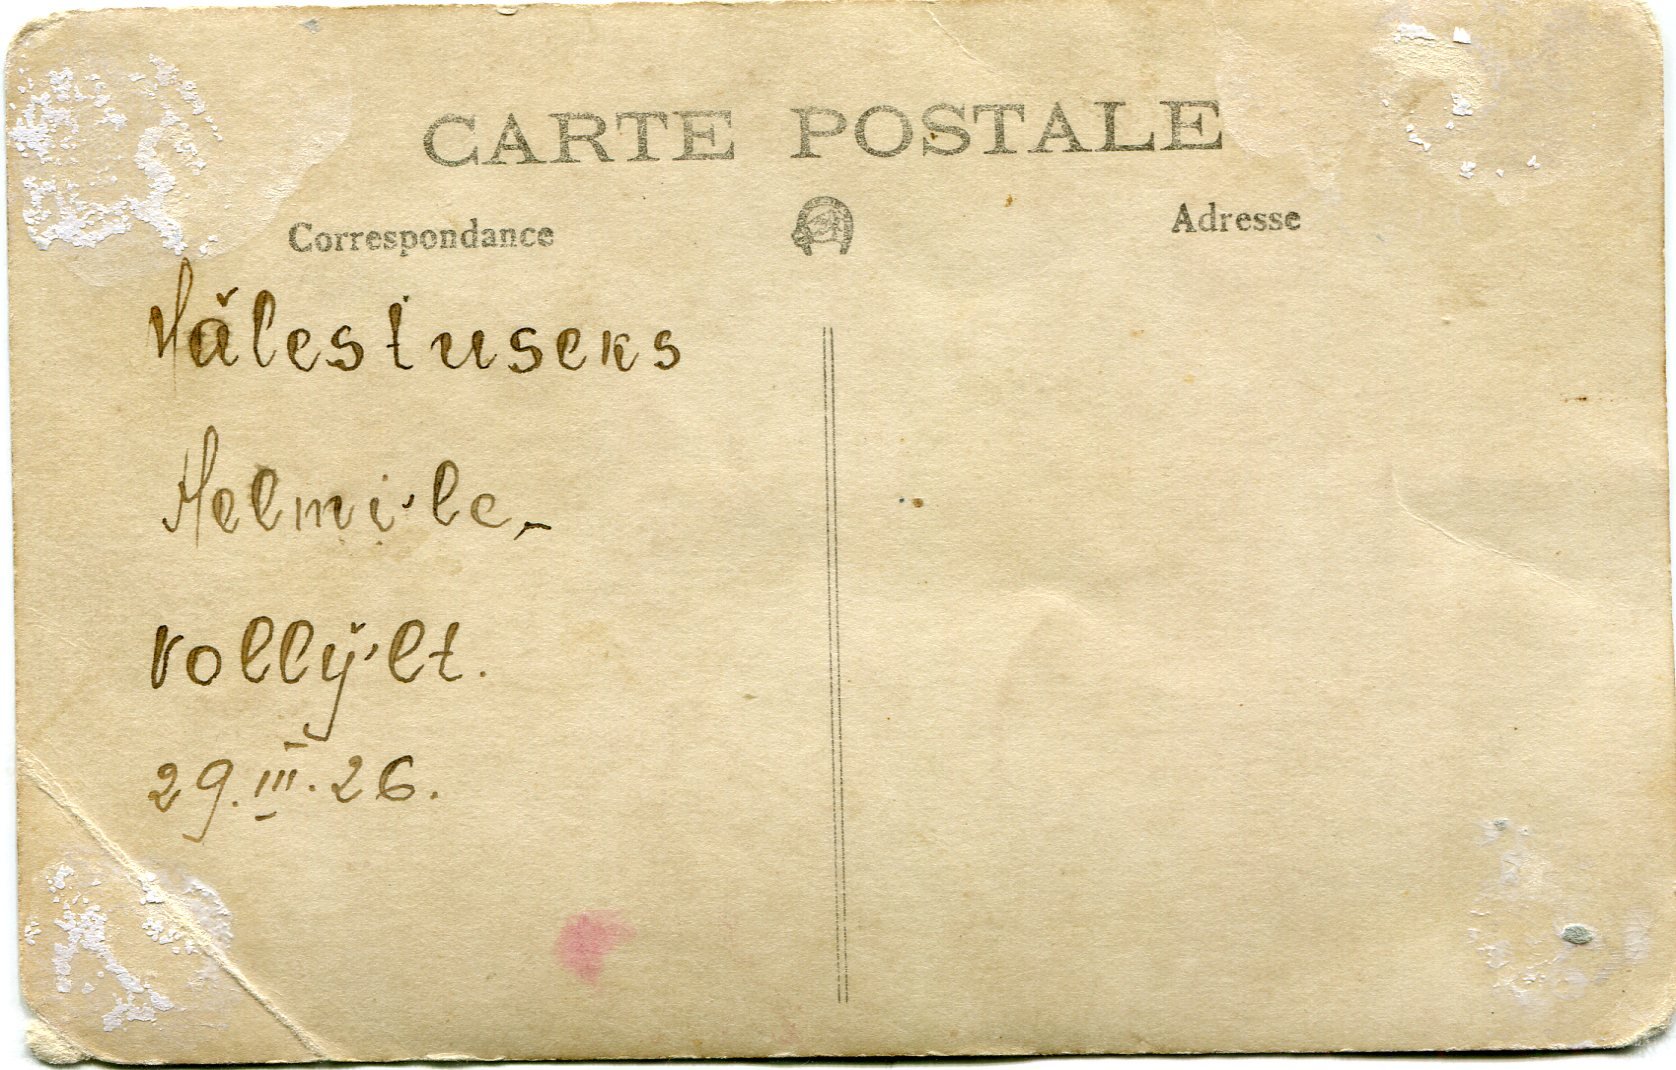 CARTE POSTALE
Correspondance
Adresse
Hälestuseks
Helmi'le,
Volly'lt.
29.III.26.